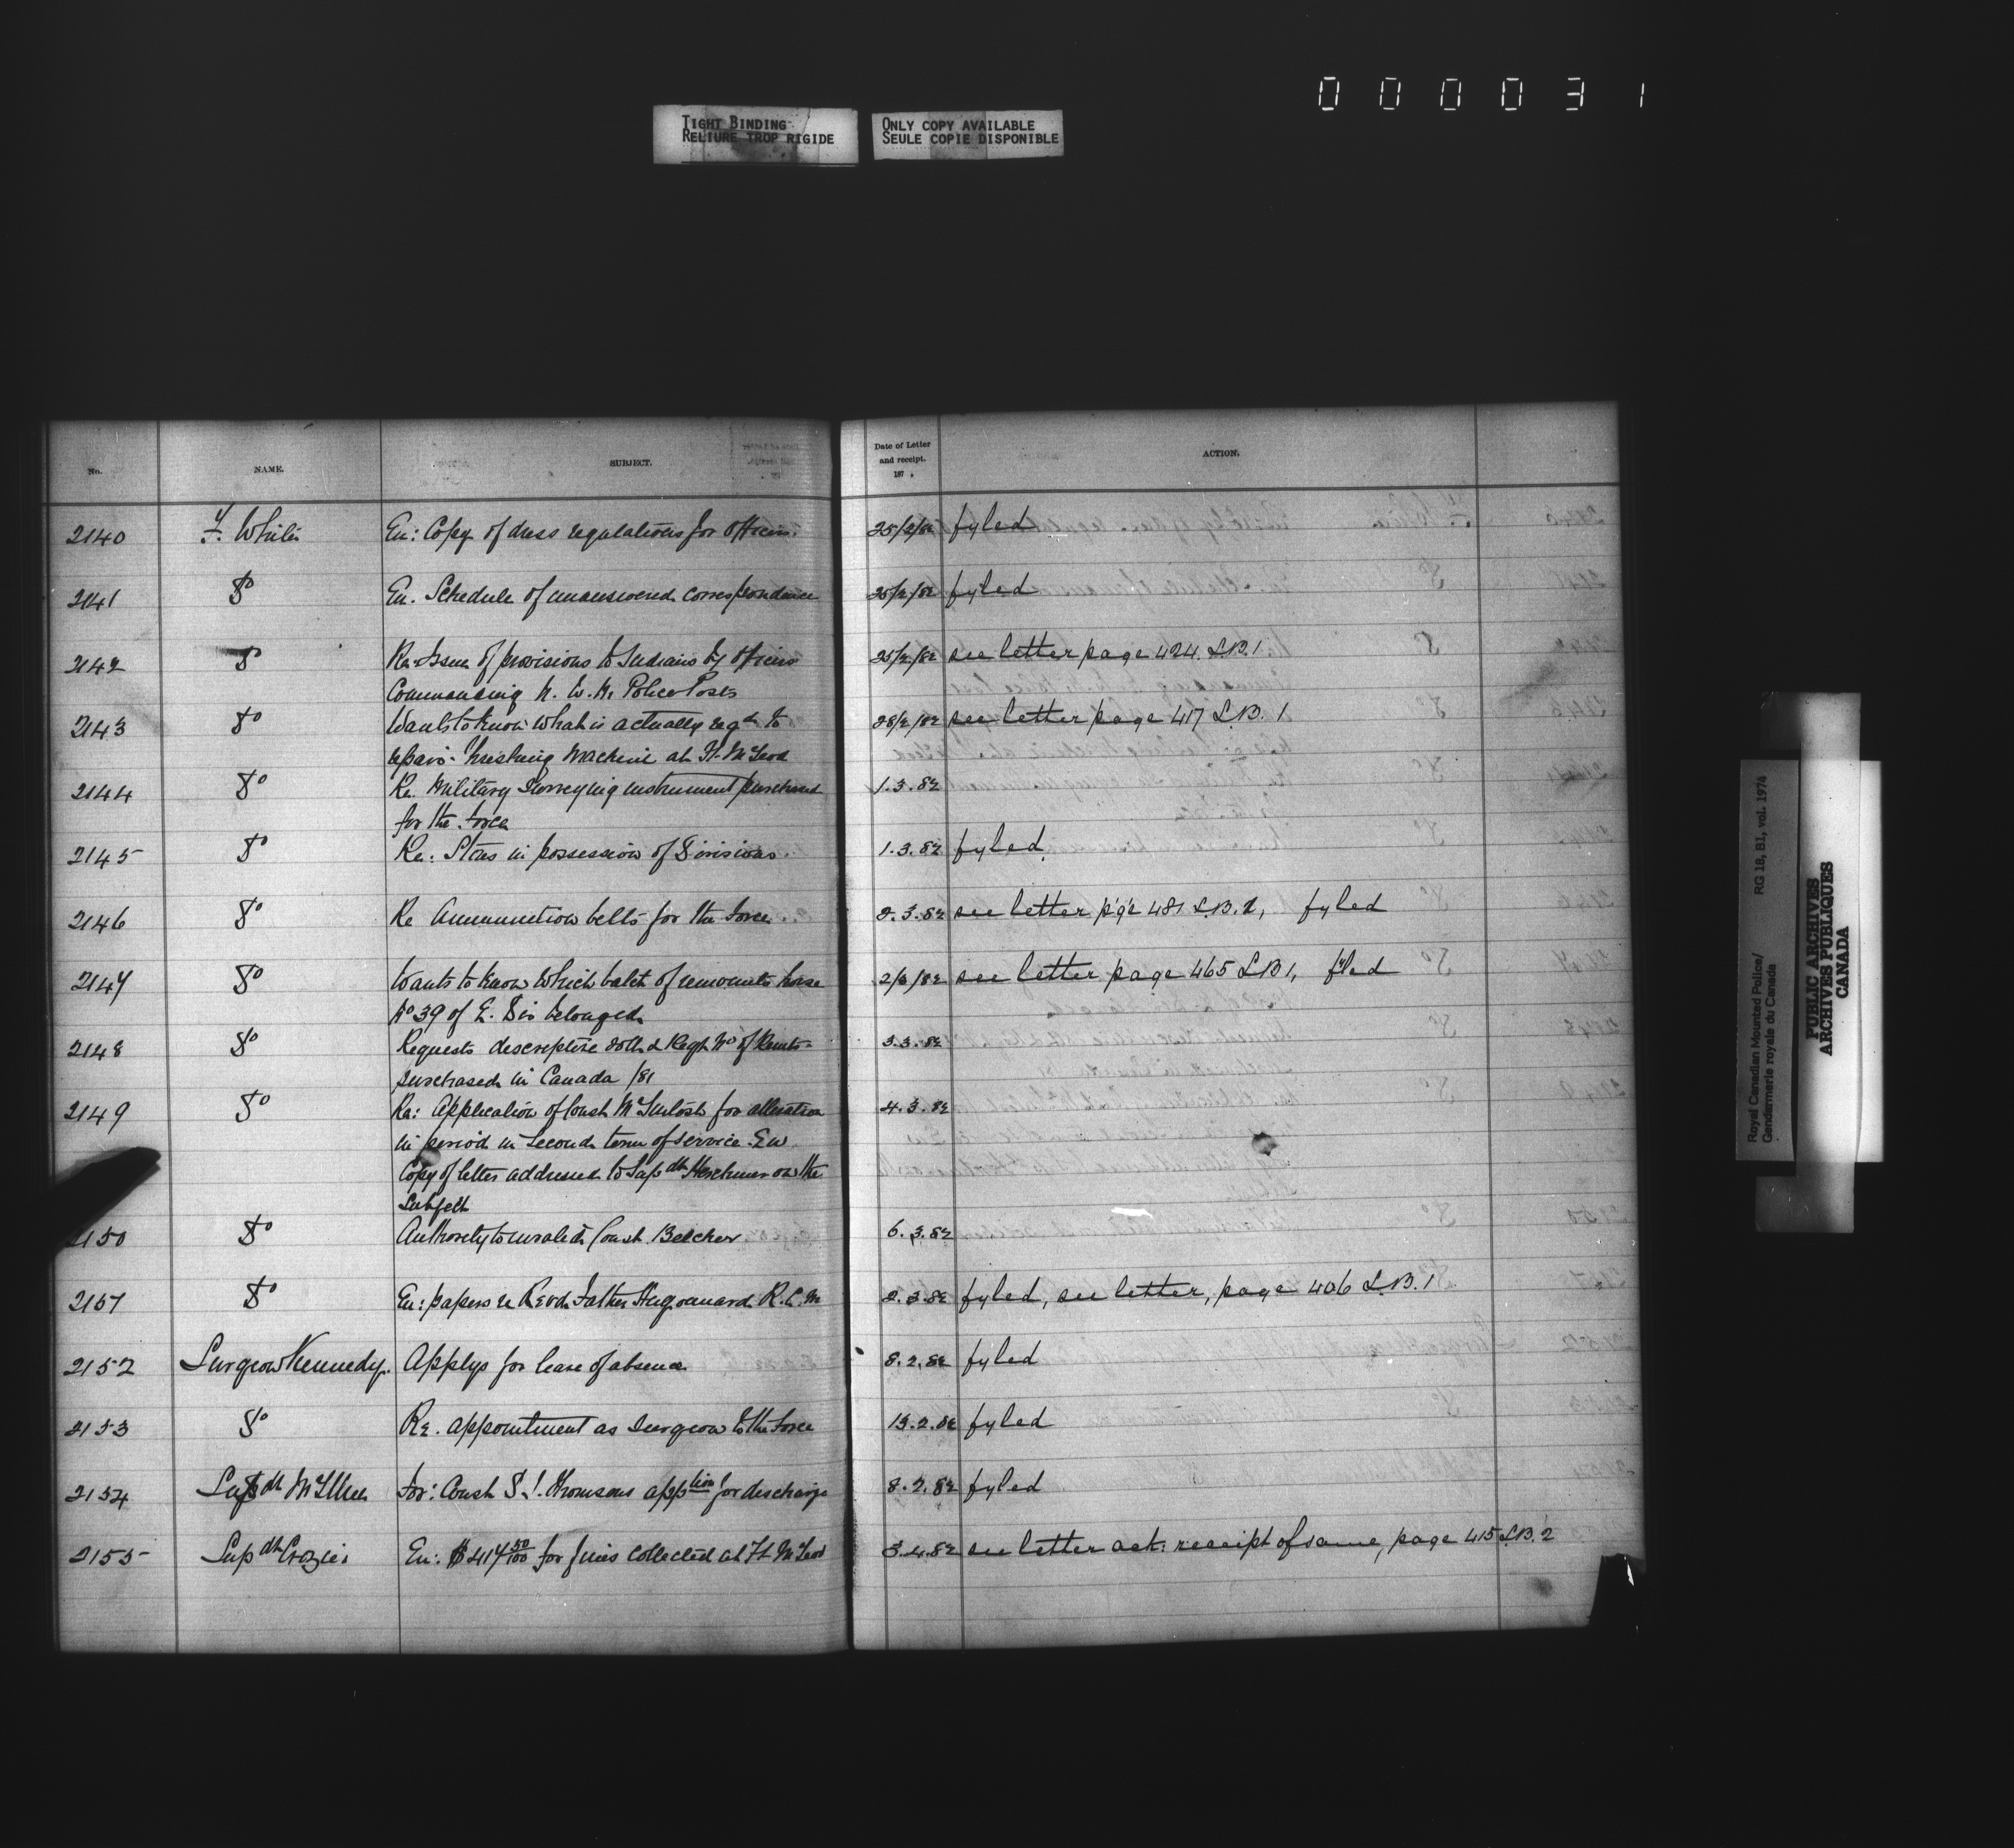 0 0 0 0 3 1
TIGHT BINDING
RELIURE TROP RIGIDE
ONLY COPY AVAILABLE
SEULE COPIE DISPONIBLE
No. NAME. SUBJECT. Date of Letter and receipt. 187 . ACTION.
2140 F. White En: Copy of dress regulations for officers. 25/2/82 fyled
2141 Do En. Schedule of unanswered correspondence 25/2/82 fyled
2142 Do Re. Issue of provisions to Indians by officers 25/2/82 see letter page 424. L.B.1
Commanding N. W. M. Police Posts
2143 Do Wants to know what is actually reqd to 28/2/82 see letter page 417 L.B. 1
repair Threshing Machine at Ft. McLeod
2144 Do Re. Military Surveying instrument purchased 1.3.82
for the force
2145 Do Re: Stores in possession of Divisions. 1.3.82 fyled.
2146 Do Re Ammunition belts for the force. 2.3.82 see letter p'g'e 481 L.B.1, fyled
2147 Do Wants to know which batch of remounts horse 2/3/82 see letter page 465 LB1, filed
No 39 of E. Div belonged.
2148 Do Requests descriptive & Regtl No of Remts
purchased in Canada /81 3.3.82
2149 Do Re: Application of Const McIntosh for alteration 4.3.82
in period in second term of service. En
Copy of letter addressed to Supdt Herchmer on the
Subject
2150 Do Authority to invalid Const. Belcher 6.3.82
2151 Do En: papers re Revd. Father Hugonnard R.C.M 2.3.82 fyled, see letter, page 406 L.B.1
2152 Surgeon Kennedy. Applys for leave of absence 8.2.82 fyled
2153 Do Re. appointment as Surgeon to the force 13.2.82 fyled
2154 Supdt McIllree For: Const S. J. Thomsons apption for discharge 8.2.82 fyled
2155 Supdt Crozier En: $417 50/100 for fines collected at Ft McLeod 3.4.82 see letter ack: receipt of same, page 415 L.B.2
Royal Canadian Mounted Police/
Gendarmerie royale du Canada
RG 18, B1, vol. 1974
PUBLIC ARCHIVES
ARCHIVES PUBLIQUES
CANADA